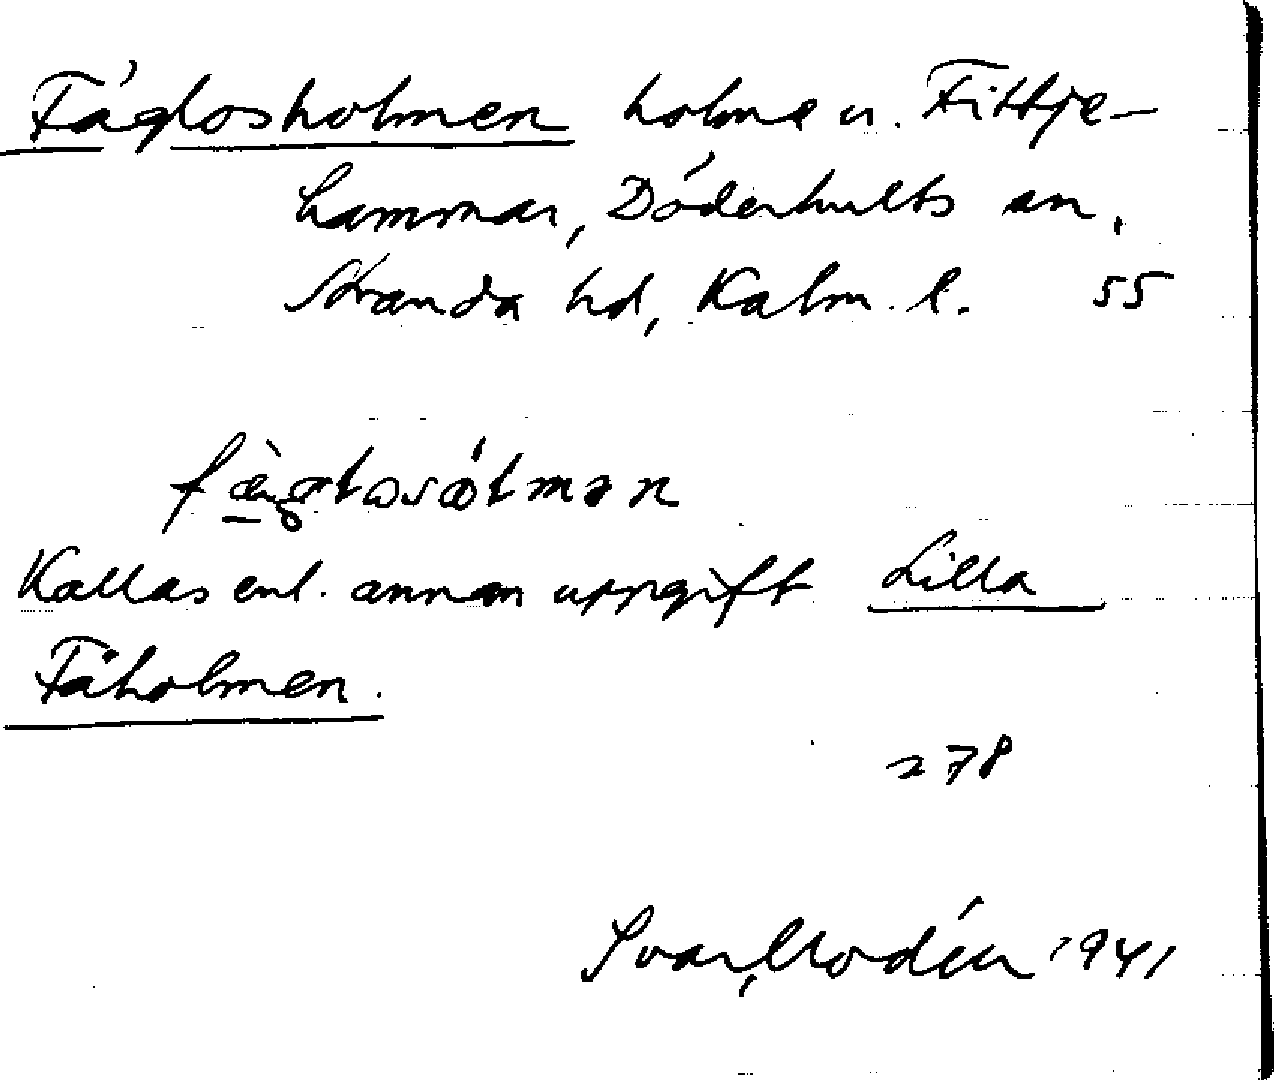 Fåglosholmen holme n. Fittje-
hammar, Döderhults sn,
Stranda hd, Kalm. l. 55
Kallas enl. annan uppgift Lilla
Fåholmen.
278
Ivar Modéer 1941